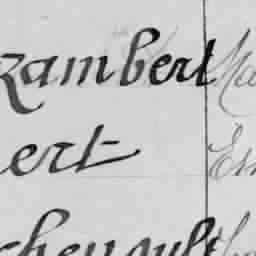 zambert Ma
ert Em
chenault